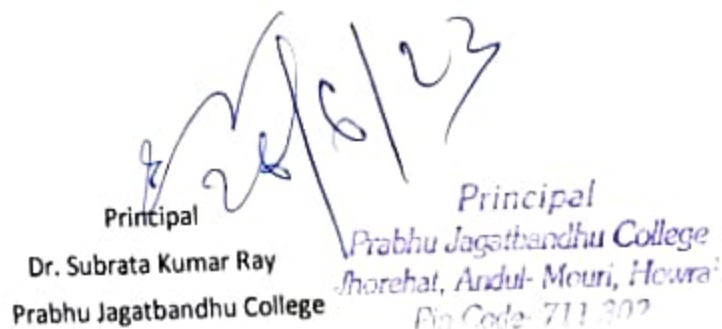 26/6/23
Principal
Dr. Subrata Kumar Ray
Prabhu Jagatbandhu College
Principal
Prabhu Jagatbandhu College
Jhorehat, Andul- Mouri, Howra
Pin Code- 711 302